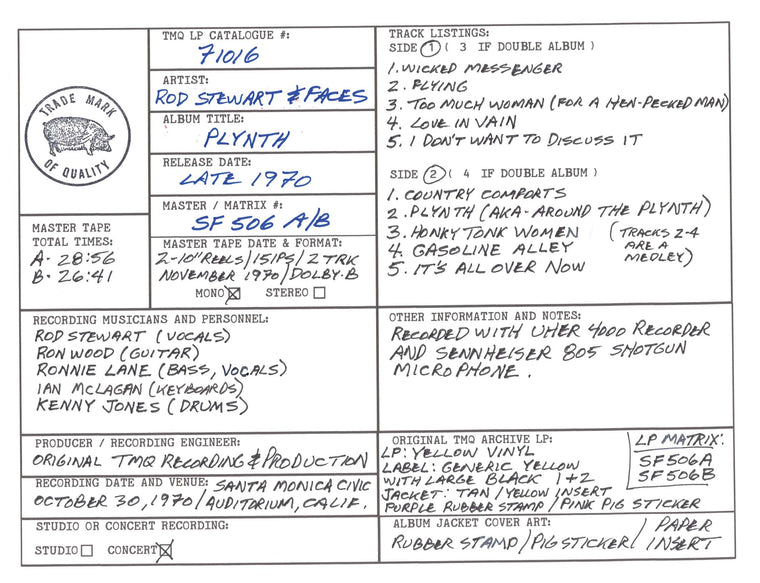 TRADE MARK
OF QUALITY
TMQ LP CATALOGUE #:
71016
ARTIST:
ROD STEWART & FACES
ALBUM TITLE:
PLYNTH
RELEASE DATE:
LATE 1970
MASTER / MATRIX #:
SF 506 A/B
MASTER TAPE
TOTAL TIMES:
A- 28:56
B- 26:41
MASTER TAPE DATE & FORMAT:
2-10" REELS/15IPS/2 TRK
NOVEMBER 1970/DOLBY-B
MONO STEREO
TRACK LISTINGS:
SIDE 1 ( 3 IF DOUBLE ALBUM )
1. WICKED MESSENGER
2. FLYING
3. TOO MUCH WOMAN (FOR A HEN-PECKED MAN)
4. LOVE IN VAIN
5. I DON'T WANT TO DISCUSS IT
SIDE 2 ( 4 IF DOUBLE ALBUM )
1. COUNTRY COMFORTS
2. PLYNTH (AKA-AROUND THE PLYNTH)
3. HONKY TONK WOMEN
4. GASOLINE ALLEY
5. IT'S ALL OVER NOW
(TRACKS 2-4
ARE A
MEDLEY)
RECORDING MUSICIANS AND PERSONNEL:
ROD STEWART (VOCALS)
RON WOOD (GUITAR)
RONNIE LANE (BASS, VOCALS)
IAN MCLAGAN (KEYBOARDS)
KENNY JONES (DRUMS)
OTHER INFORMATION AND NOTES:
RECORDED WITH UHER 4000 RECORDER
AND SENNHEISER 805 SHOTGUN
MICROPHONE.
PRODUCER / RECORDING ENGINEER:
ORIGINAL TMQ RECORDING & PRODUCTION
RECORDING DATE AND VENUE: SANTA MONICA CIVIC
OCTOBER 30, 1970/AUDITORIUM, CALIF.
STUDIO OR CONCERT RECORDING:
STUDIO CONCERT
ORIGINAL TMQ ARCHIVE LP:
LP: YELLOW VINYL
LABEL: GENERIC YELLOW
WITH LARGE BLACK 1+2
JACKET: TAN/YELLOW INSERT
PURPLE RUBBER STAMP/PINK PIG STICKER
LP MATRIX:
SF506A
SF506B
ALBUM JACKET COVER ART:
RUBBER STAMP/PIG STICKER/
PAPER
INSERT